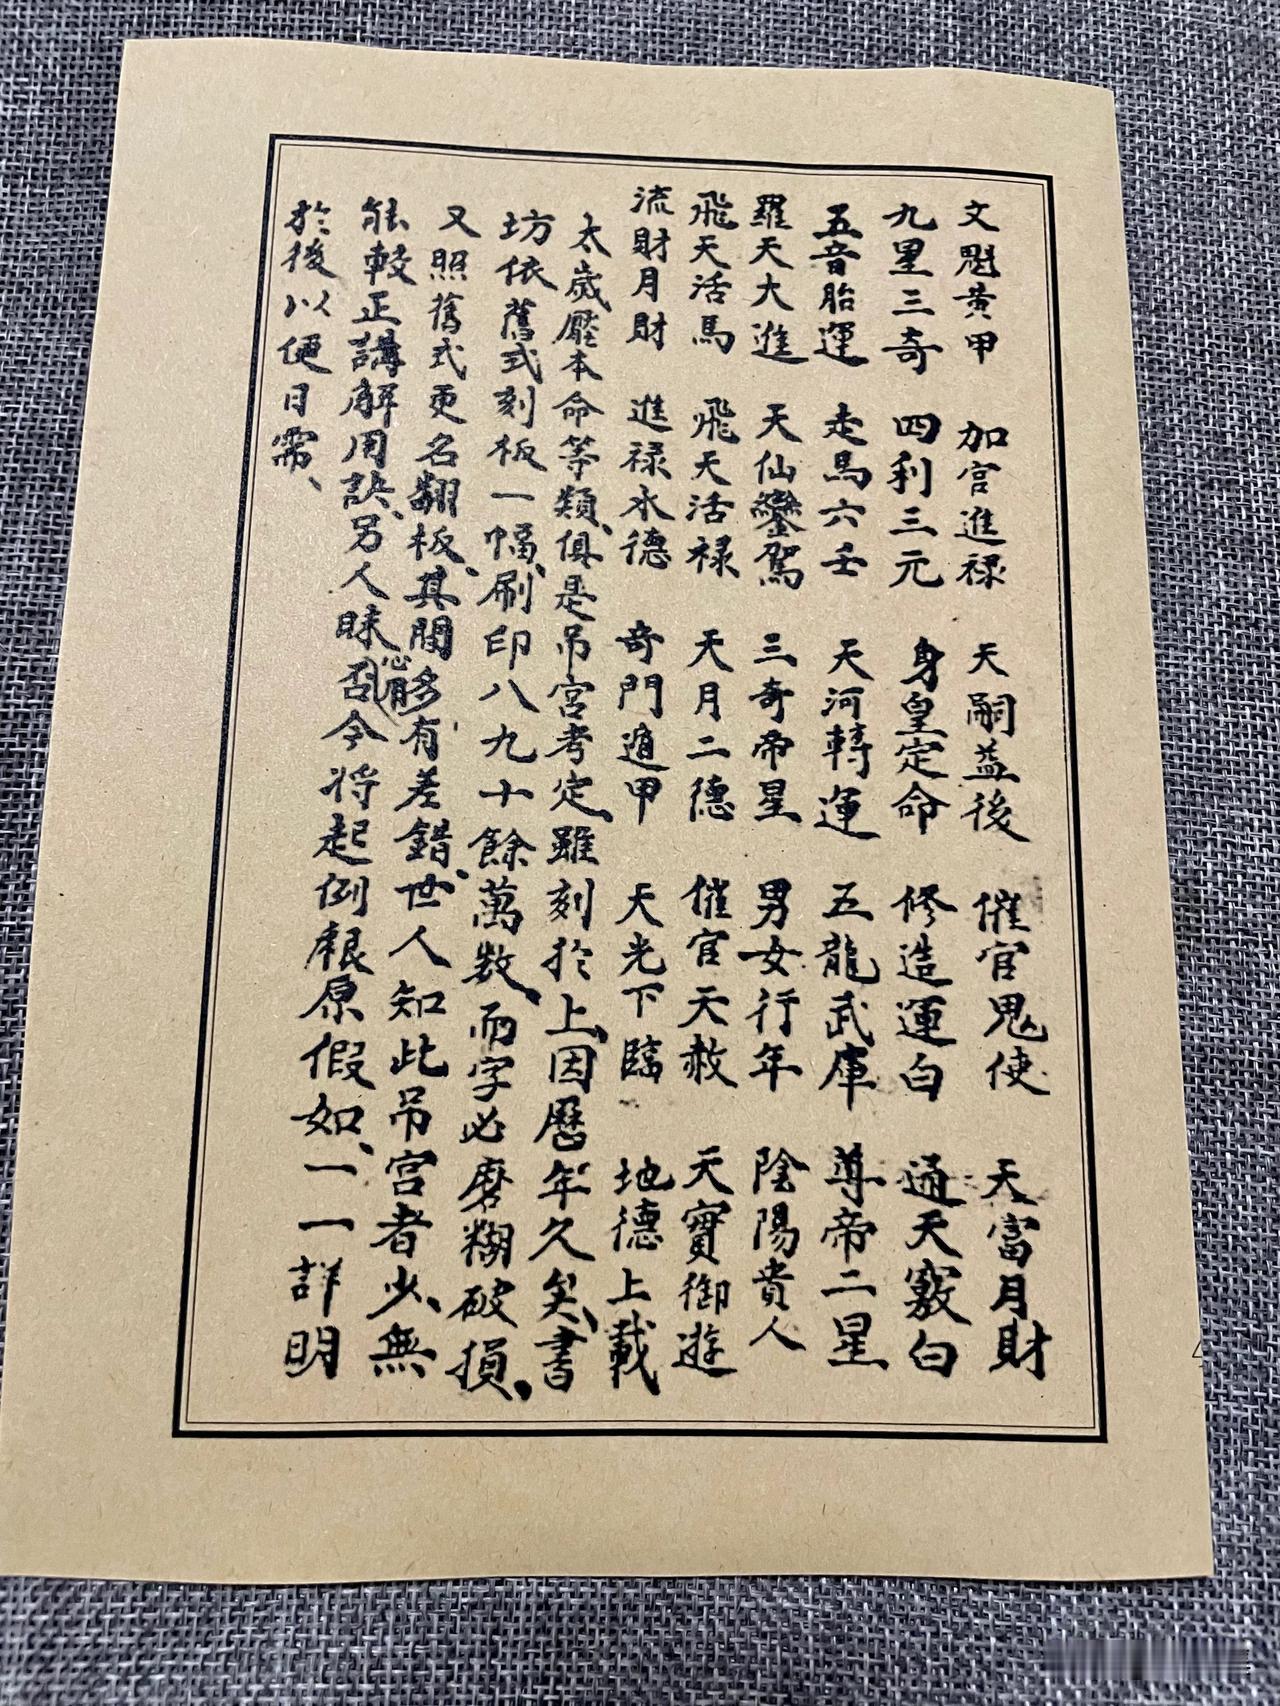 文魁黃甲 加官進祿 天嗣益後 催官鬼使 天富月財
九星三奇 四利三元 身皇定命 修造運白 通天竅白
五音胎運 走馬六壬 天河轉運 五龍武庫 尊帝二星
羅天大進 天仙鑾駕 三奇帝星 男女行年 陰陽貴人
飛天活馬 飛天活祿 天月二德 催官天赦 天寶御遊
流財月財 進祿水德 奇門遁甲 天光下臨 地德上載
太歲壓本命等類、俱是吊宮考定、雖刻於上、因曆年久矣、書
坊依舊式刻板一幅、刷印八九十餘萬數、而字必磨糊破損,
又照舊式更名翻板、其間多有差錯、世人知此吊宮者少、無
能較正講解用訣、另人昧心胡乱、今將起例根原假如、一一詳明
於後以便日需、